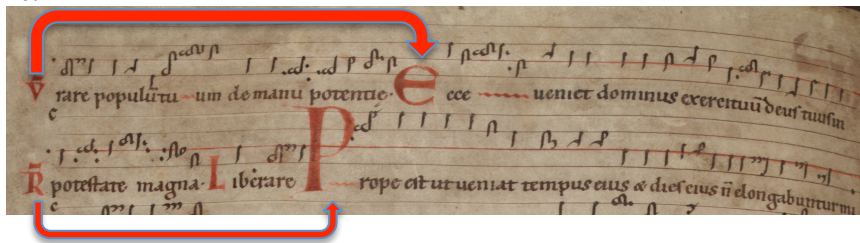 V̄ rare populū tu um de manu potentie. Ecce ueniet dominus exercituū deus tuus in
c
R̄ potestate magna. Liberare Prope est ut ueniat tempus eius & dies eius n̄ elongabuntur
c